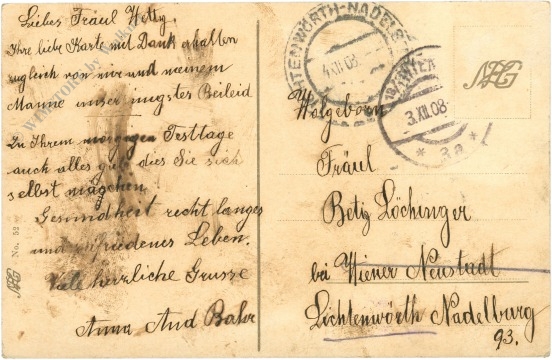 Liebes Fräul Hetty.
Ihre liebe Karte mit Dank erhalten
zugleich von mir und meinem
Manne unser inigstes Beileid
Zu Ihrem morgigen Festtage
auch alles gute dies Sie sich
selbst
Gesundheit recht langes
und zufriedenes Leben.
Viele herzliche Grüsse
Anna And Bahr
No. 52
LICHTENWÖRTH-NADELBURG
4 XII 08
3.XII.08
* 3a *
Wolgeborn
Fräul
Betig Löchinger
bei Wiener Neustadt
Lichtenwörth Nadelburg
93.